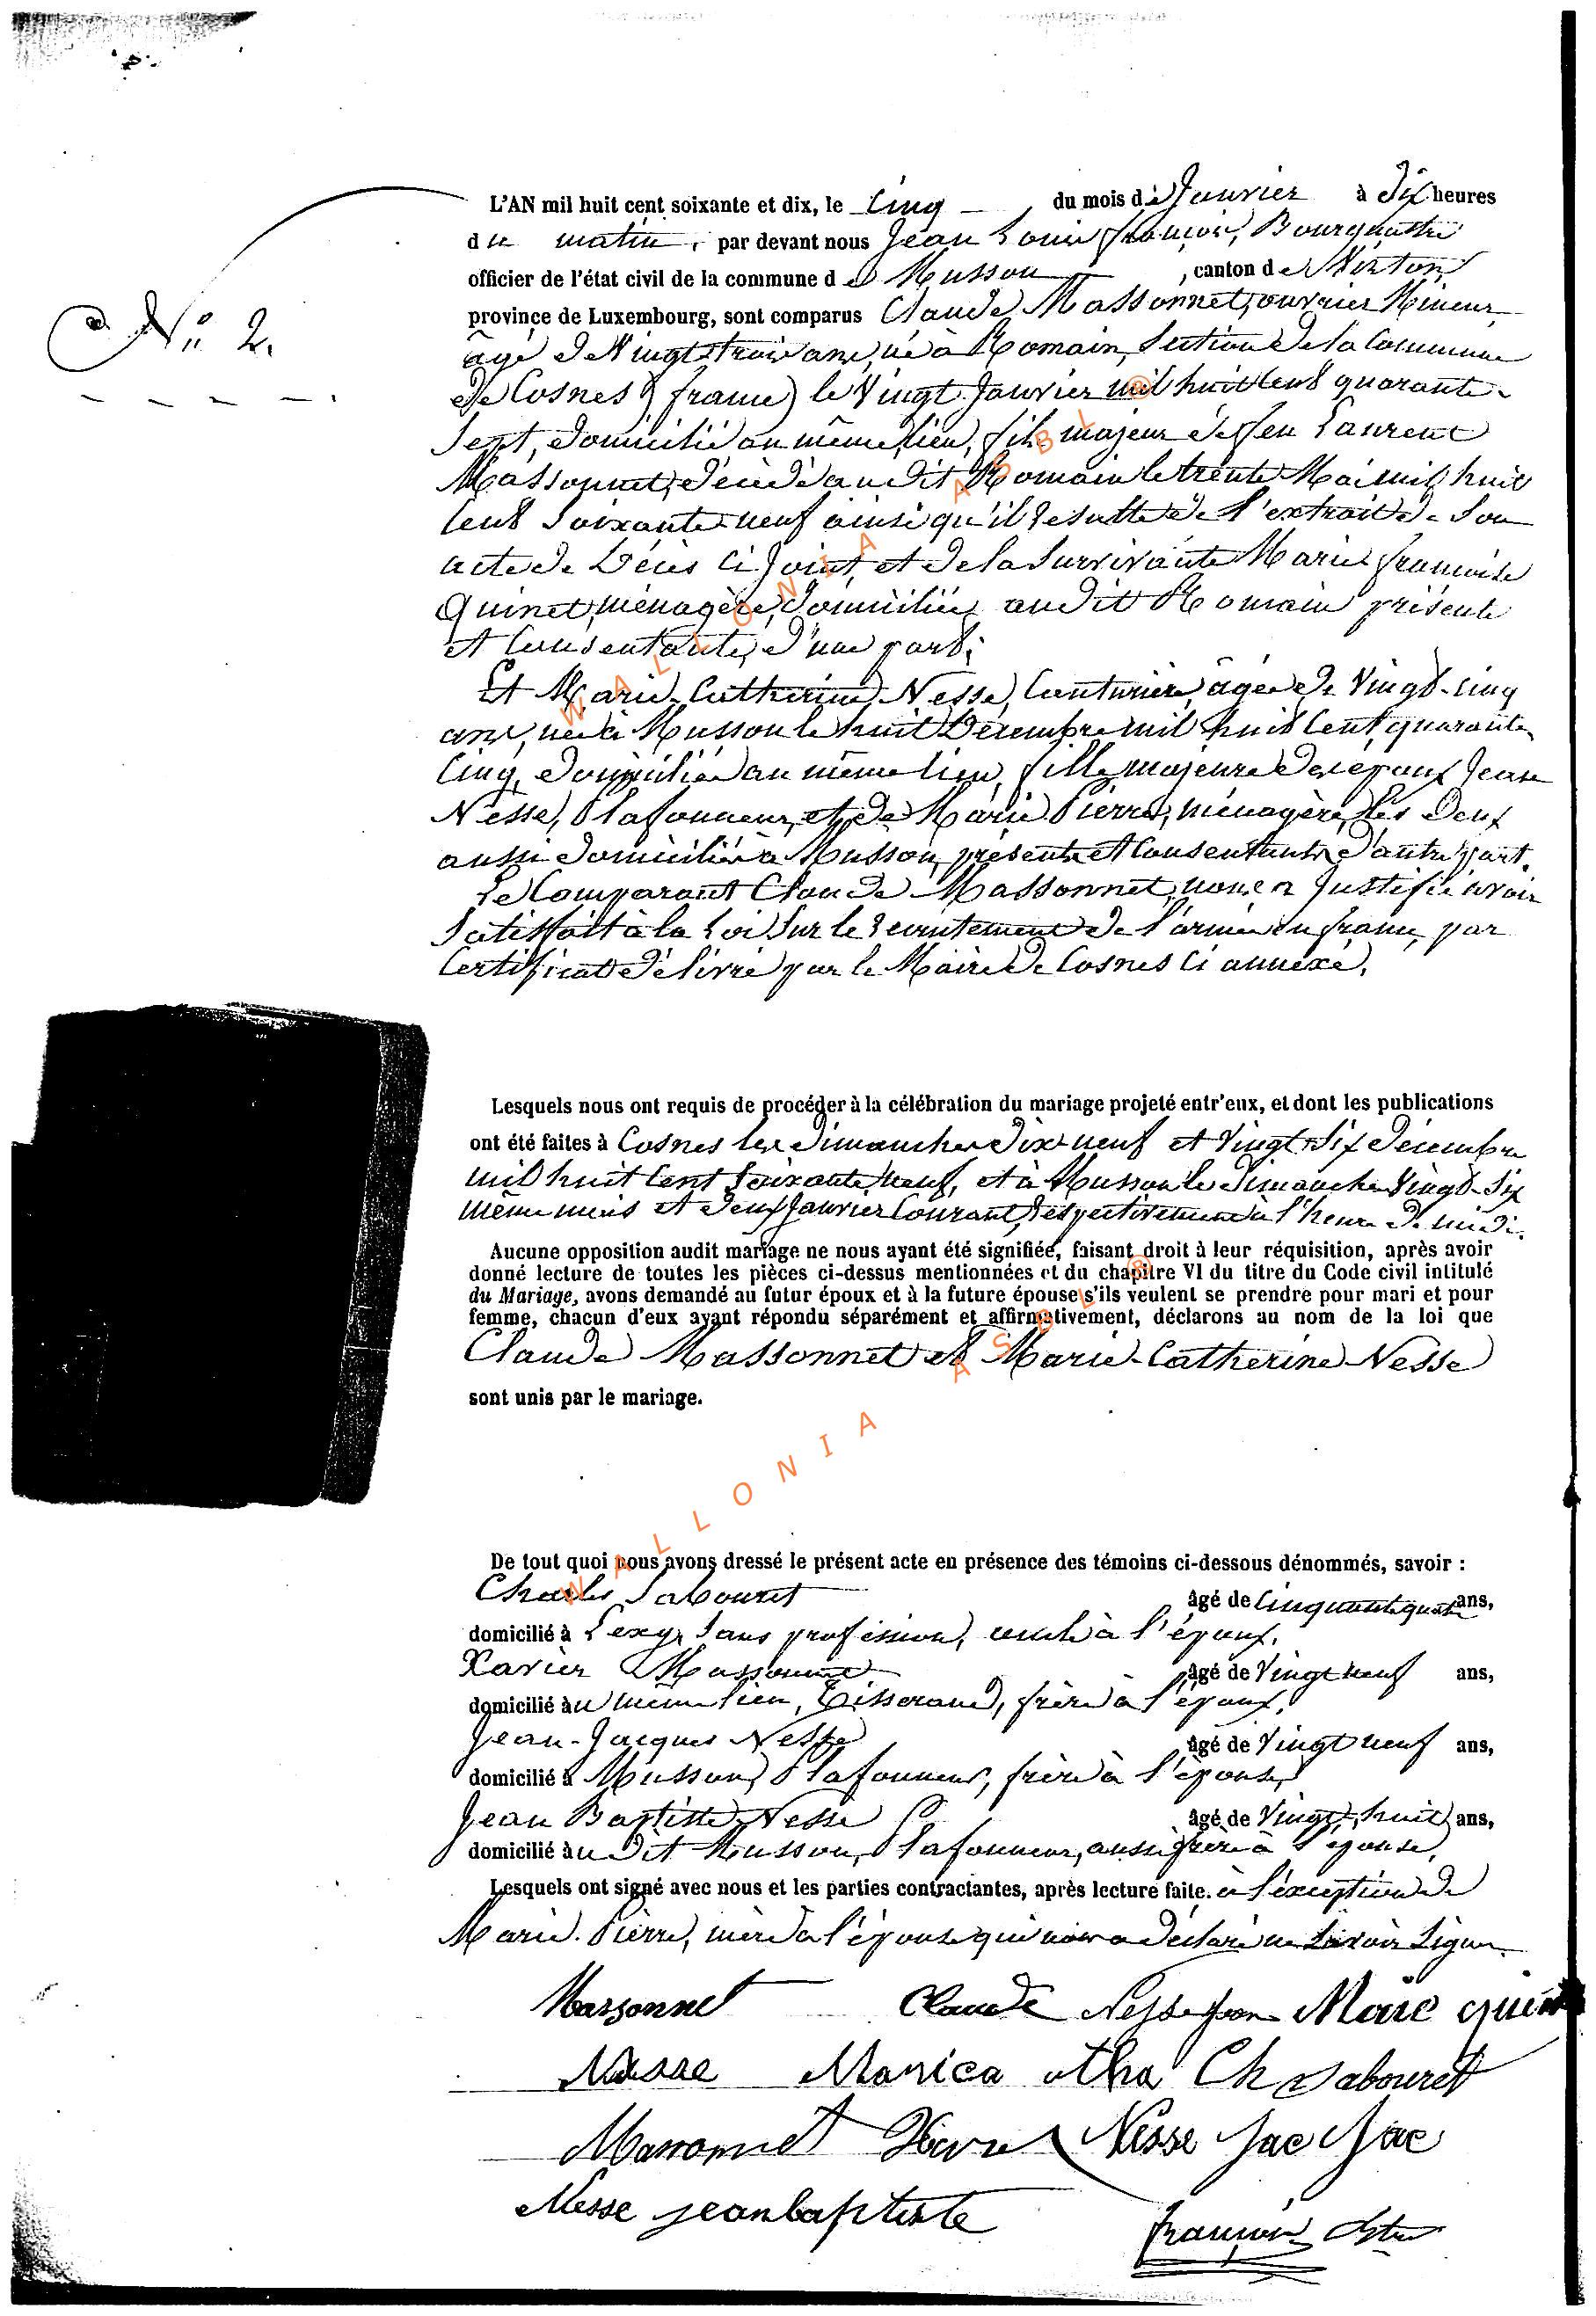 L'AN mil huit cent soixante et dix, le Cinq du mois de Janvier à dix heures
du matin, par devant nous Jean Louis françois, Bourgmestre
officier de l'état civil de la commune de Musson, canton de Virton
province de Luxembourg, sont comparus Claude Massonnet, ouvrier Mineur
âgé de Vingt trois ans, né à Romain, Section de la Commune
de Cosnes (france) le Vingt Janvier mil huit cent quarante
Sept, domicilié au même lieu, fils majeur de feu Laurent
Massonnet, décédé au dit Romain le trente Mai mil huit
Cent Soixante neuf ainsi qu'il Resulte de l'extrait de Son
acte de Décès Ci Joint, et de la Survivante Marie françoise
Quinet, ménagère, domiciliée au dit Romain présente
et Consentante, d'une part;
Et Marie-Catherine Nesse, Couturière, âgée de Vingt-cinq
ans, née à Musson le huit Décembre mil huit Cent quarante
Cinq, domiciliée au même lieu, fille majeure des epoux Jean
Nesse, Plafonneur, et de Marie Pierre, ménagère, les deux
aussi domiciliés à Musson, présents et Consentants d'autre part.
Le Comparant Claude Massonnet, nous a Justifié avoir
Satisfait à la Loi Sur le recrutement de l'armée en france, par
Certificat délivré par le Maire de Cosnes Ci annexé.
N° 2.
Lesquels nous ont requis de procéder à la célébration du mariage projeté entr'eux, et dont les publications
ont été faites à Cosnes les dimanches dix neuf et Vingt Six décembre
mil huit Cent Soixante neuf, et à Musson le dimanche Vingt-Six
même mois et deux Janvier Courant, respectivement à l'heure de midi.
Aucune opposition audit mariage ne nous ayant été signifiée, faisant droit à leur réquisition, après avoir
donné lecture de toutes les pièces ci-dessus mentionnées et du chapitre VI du titre du Code civil intitulé
du Mariage, avons demandé au futur époux et à la future épouse s'ils veulent se prendre pour mari et pour
femme, chacun d'eux ayant répondu séparément et affirmativement, déclarons au nom de la loi que
Claude Massonnet et Marie-Catherine Nesse
sont unis par le mariage.
De tout quoi nous avons dressé le présent acte en présence des témoins ci-dessous dénommés, savoir :
Charles Sabouret âgé de Cinquante quatre ans,
domicilié à Lexy, Sans profession, oncle à l'époux.
Xavier Massonnet âgé de Vingt neuf ans,
domicilié au même lieu, Tisserand, frère à l'époux.
Jean-Jacques Nesse âgé de Vingt neuf ans,
domicilié à Musson, Plafonneur, frère à l'épouse
Jean Baptiste Nesse âgé de Vingt huit ans,
domicilié au dit Musson, Plafonneur, aussi frère à l'épouse.
Lesquels ont signé avec nous et les parties contractantes, après lecture faite. à l'exception de
Marie Pierre, mère à l'épouse qui nous a déclaré ne Savoir Signer
Massonnet Claude Nesse Jean
Nesse Marica Ch Sabouret
Massonnet Nesse Jac Jac
Nesse jeanbaptiste
françois
WALLONIA ASBL ®
WALLONIA ASBL ®